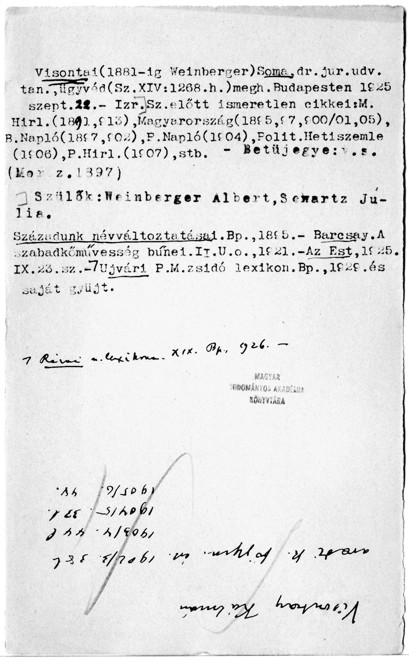 Visontai(1881-ig Weinberger)Soma,dr.jur.udv.
tan.,ügyvéd(Sz.XIV:1268.h.)megh.Budapesten 1925
szept.22.- Izr.Sz.előtt ismeretlen cikkei:M.
Hirl.(1891,913),Magyarország(1895,97,900/01,05),
B.Napló(1897,902),P.Napló(1904),Polit.Hetiszemle
(1906),P.Hirl.(1907),stb. - Betüjegye:v.s.
1897)
Szülők:Weinberger Albert,Scwartz Jú-
lia.
Századunk névváltoztatásai.Bp.,1895.- Barcsay.A
szabadkőművesség bűnei.II.U.o.,1921.-Az Est,1925.
IX.23.sz.-7Ujvári P.M.zsidó lexikon.Bp.,1929.és
saját gyüjt.
7 Révai n.lexikona. XIX. Bp., 1926. -
MAGYAR
TUDOMÁNYOS AKADÉMIA
KÖNYVTÁRA
Visontay Kálmán
aradi k. főgymn. ért. 1902/3. 38 l
1903/4. 44 l
1904/5- 37 l.
1905/6. 44.